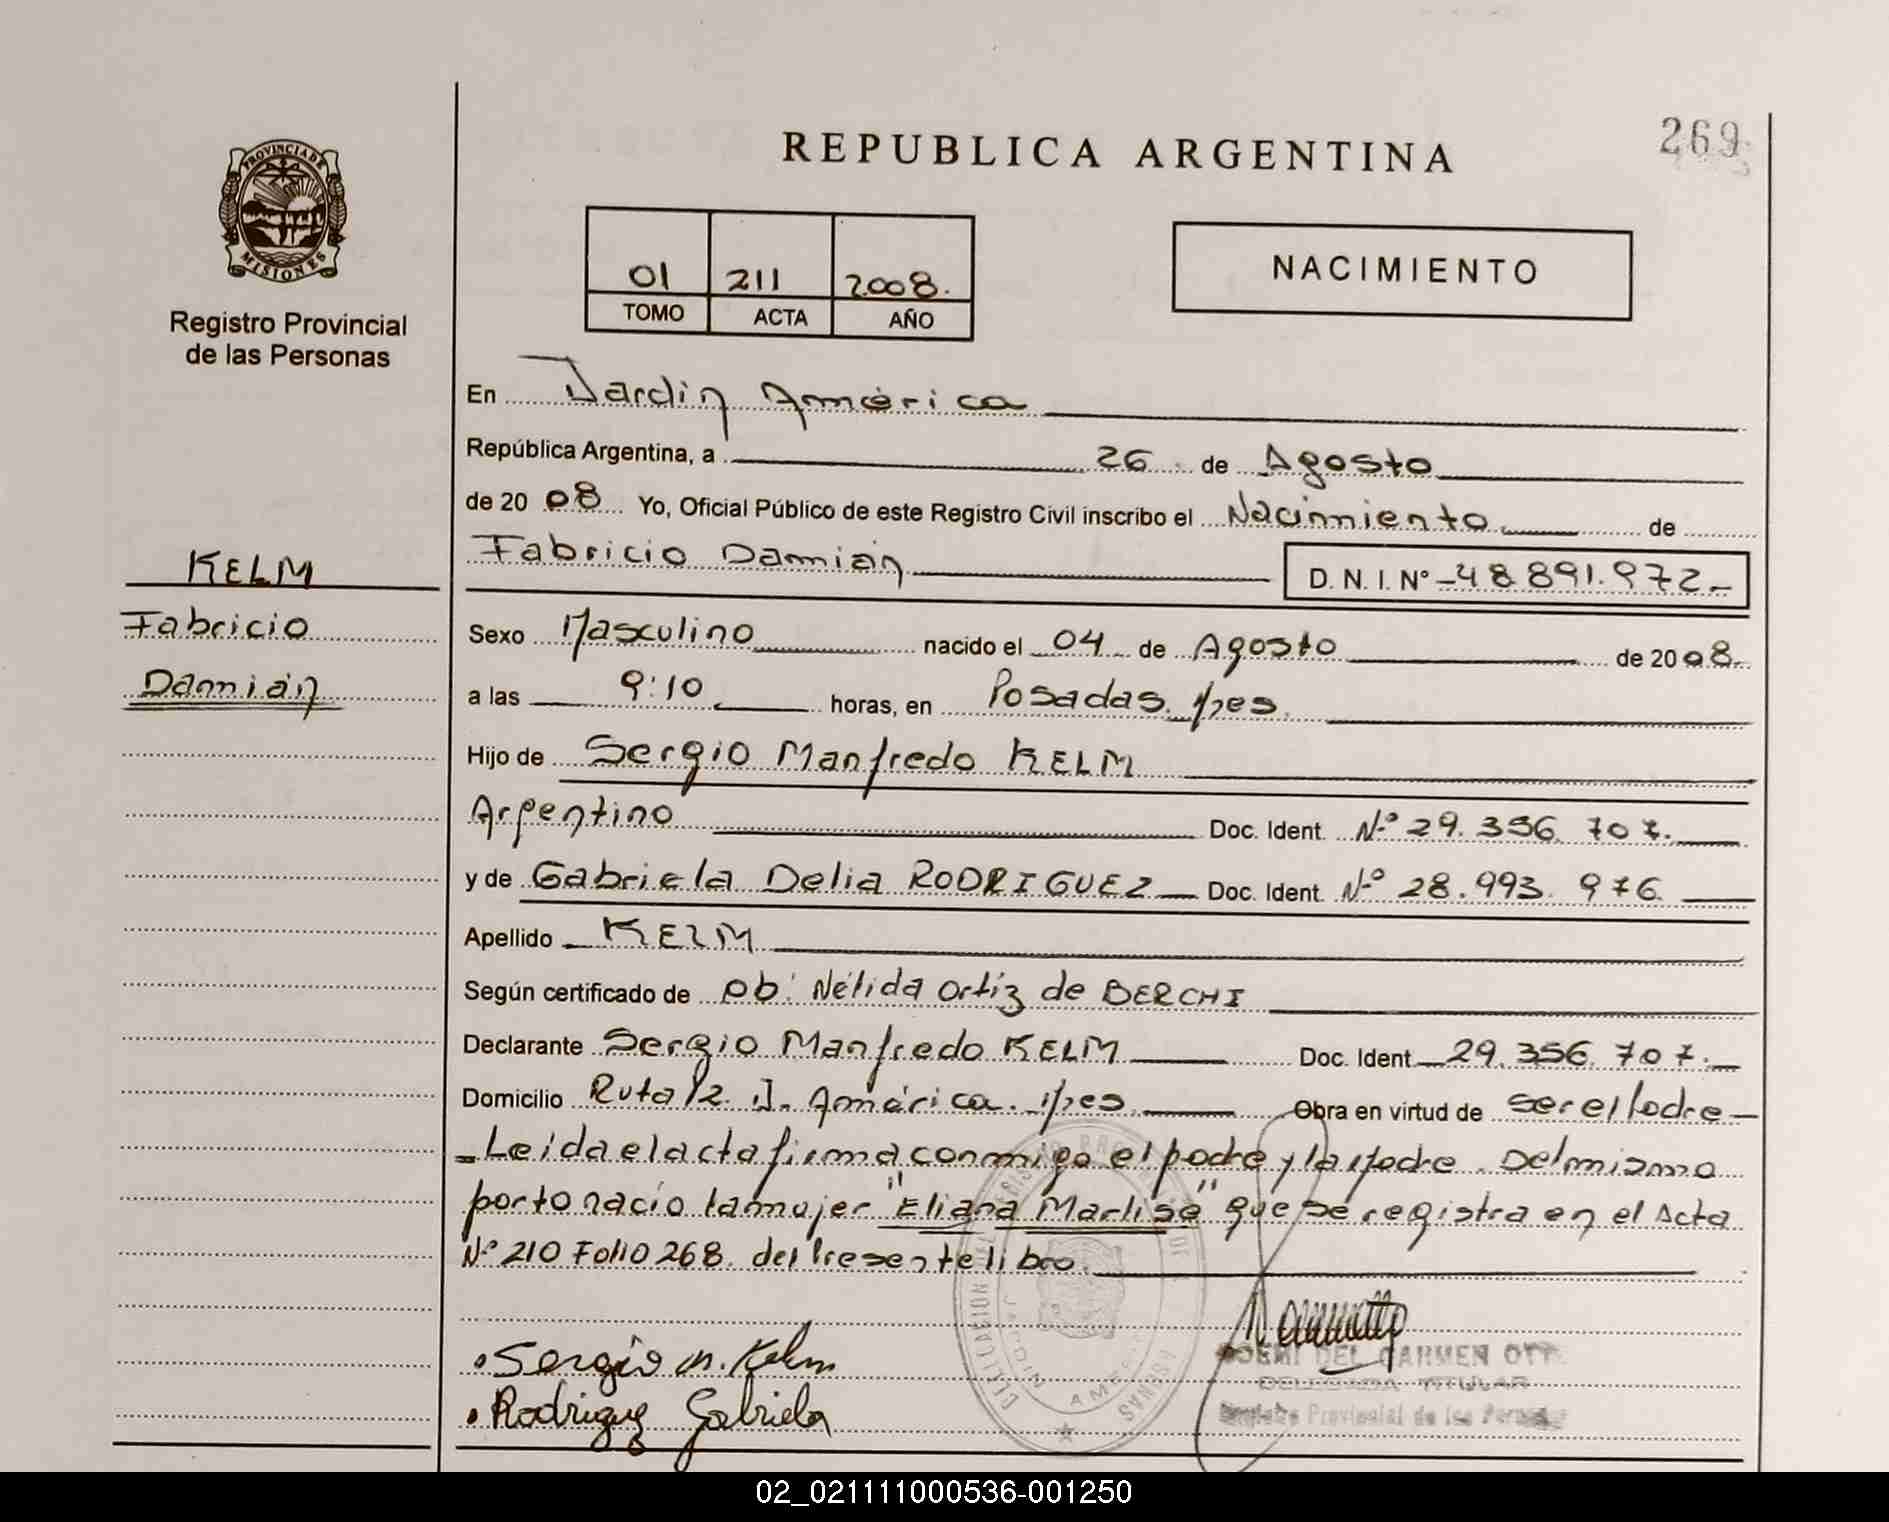 269
REPUBLICA ARGENTINA
PROVINCIA DE
MISIONES
Registro Provincial
de las Personas
01 211 2008.
TOMO ACTA AÑO
NACIMIENTO
En Jardín América
República Argentina, a 26 de Agosto
de 2008 Yo, Oficial Público de este Registro Civil inscribo el Nacimiento de
Fabricio Damián D. N. I. N° 48.891.972.-
KELM
Fabricio
Damián
Sexo Masculino nacido el 04 de Agosto de 2008.
a las 9:10 horas, en Posadas. Mnes.
Hijo de Sergio Manfredo KELM
Argentino Doc. Ident. Nº 29.356.707.
y de Gabriela Delia RODRIGUEZ Doc. Ident. Nº 28.993.976.
Apellido KELM
Según certificado de Ob. Nélida Ortiz de BERCHI
Declarante Sergio Manfredo KELM Doc. Ident. 29.356.707.
Domicilio Ruta 12. J. América. Mnes. Obra en virtud de ser el Padre
Leída el acta firma conmigo el padre y la Madre. Del mismo
parto nació la mujer "Eliana Marlise" que se registra en el Acta
Nº 210 Folio 268. del Presente libro.
Sergio M. Kelm
Rodriguez Gabriela
DEL CARMEN
DELEGADA TITULAR
Registro Provincial de las Personas
02_021111000536-001250